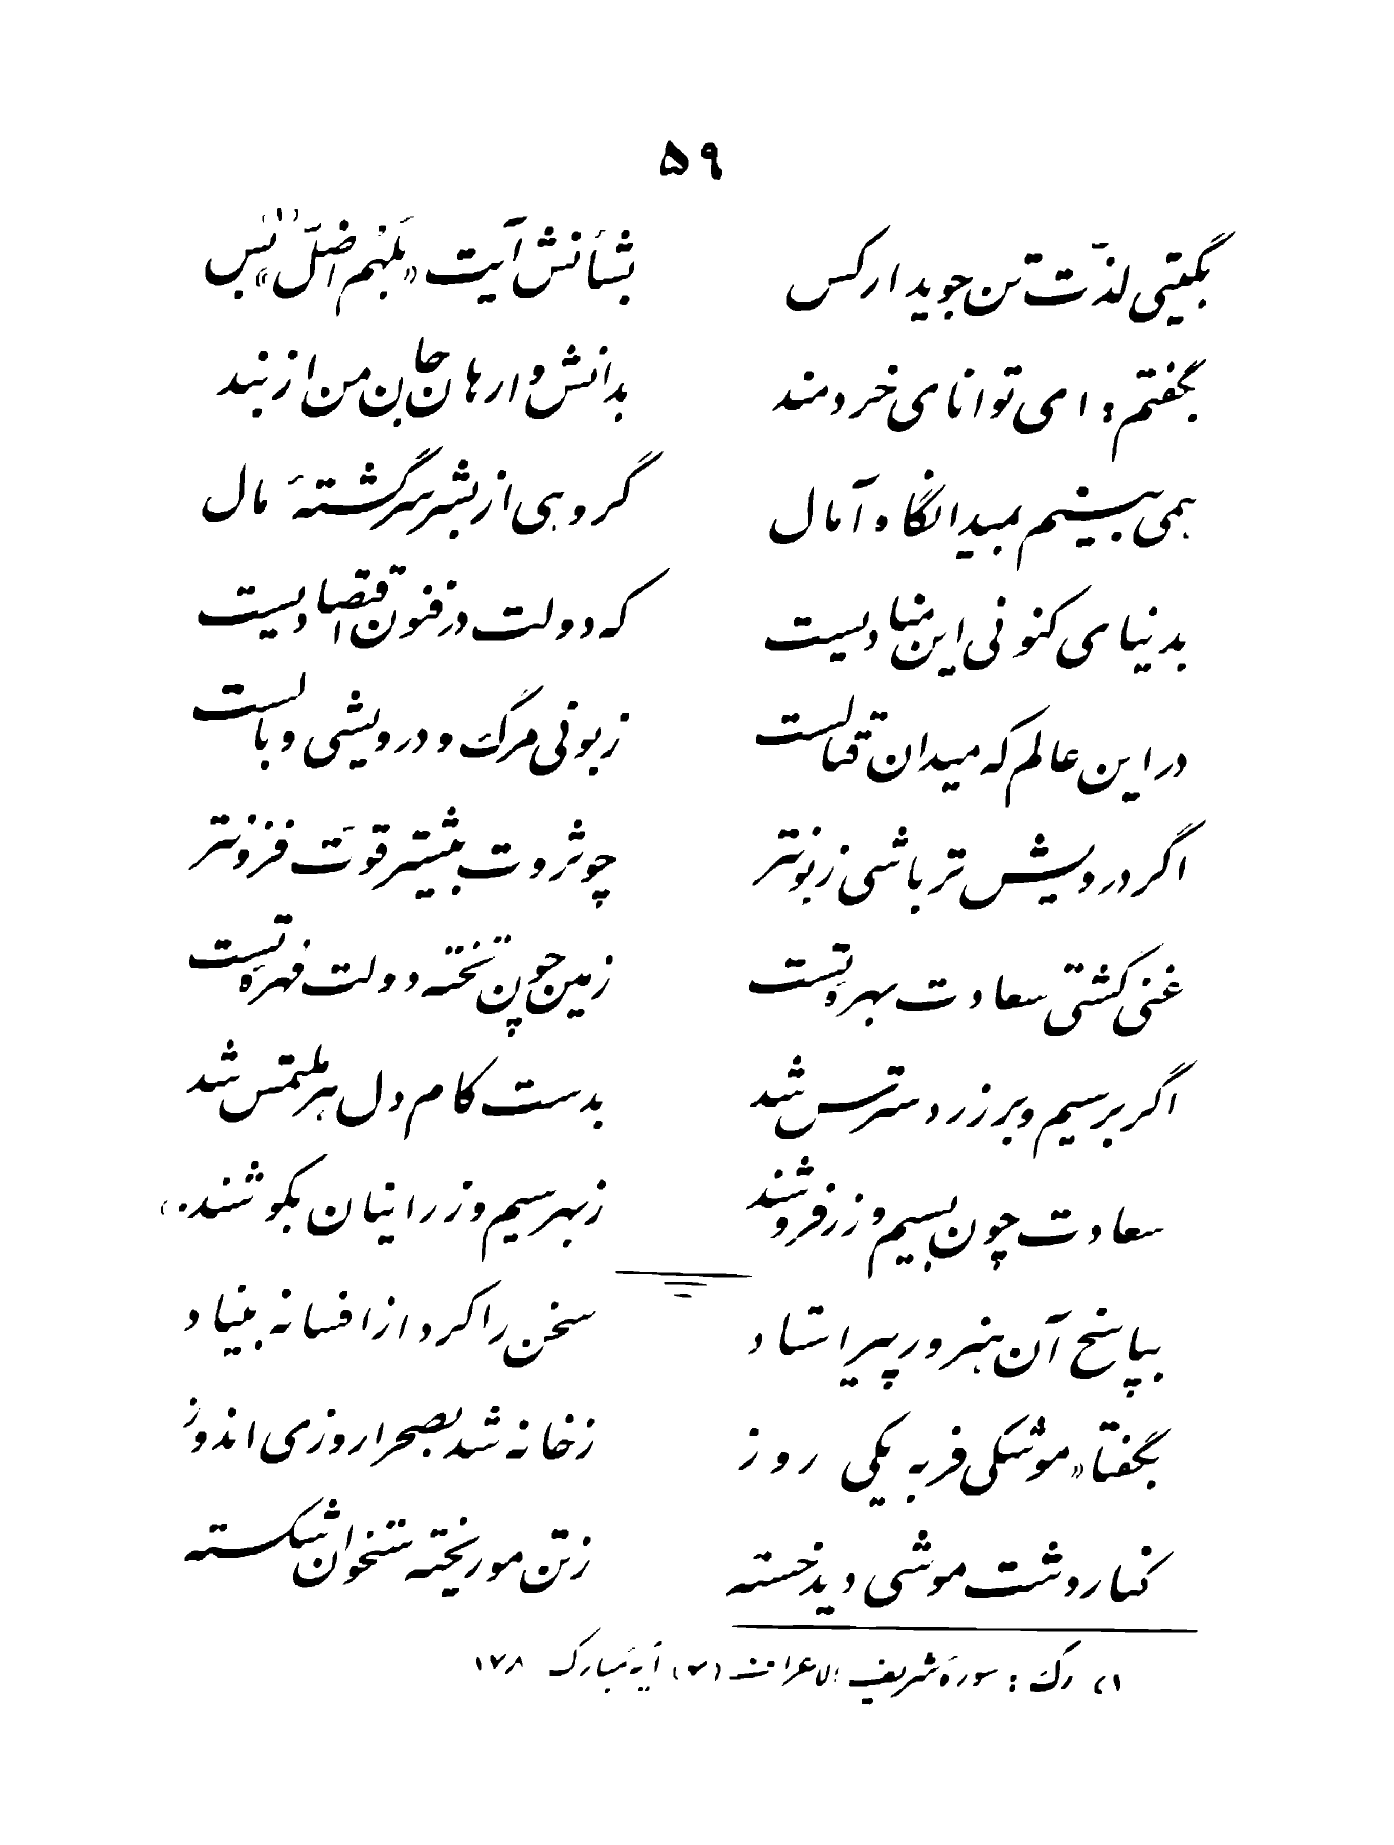 ۵۹
بگیتی لذّت تن جوید ار کس
بشأنش آیت «بَلهُم اضلّ» بس (۱)
بگفتم: ای توانای خردمند
بدانش وارهان جان من از بند
همی بینم بمیدانگاه آمال
گروهی از بشر سرگشتهٔ مال
بدنیای کنونی این منادیست
که دولت در فنون اقتصادیست
در این عالم که میدان قتالست
زبونی مرگ و درویشی وبالست
اگر درویش تر باشی زبونتر
چو ثروت بیشتر قوّت فزونتر
غنی کشتی سعادت بهره تست
زمین چون تخته دولت فهره تست
اگر بر سیم و بر زر دسترس شد
بدست کام دل هر ملتمس شد
سعادت چون بسیم و زر فروشند
ز بهر سیم و زر اینان بکوشند.
بپاسخ آن هنرور پیر استاد
سخن را کرد از افسانه بنیاد
بگفتا «موشکی فربه یکی روز
ز خانه شد بصحرا روزی اندوز
کنار دشت موشی دید خسته
ز تن مو ریخته ستخوان شکسته
۱) رک: سوره شریفه الاعراف (۷) آیه مبارک ۱۷۸